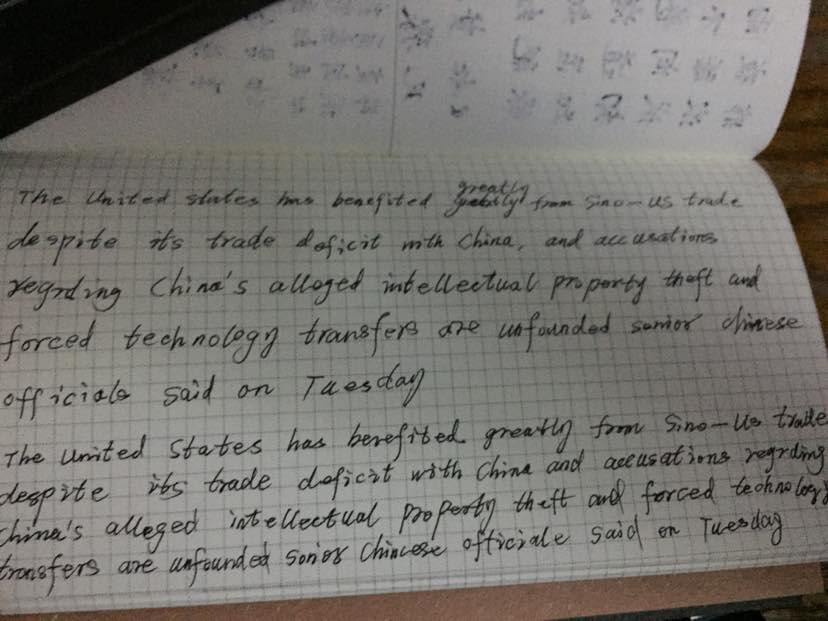 The United states has benefited greatly from Sino-US trade
despite its trade deficit with China, and accusations
regrding China's alleged intellectual property theft and
forced technology transfers are unfounded senior chinese
officials said on Tuesday
The United States has benefited greatly from Sino-US trade
despite its trade deficit with China and accusations regrding
China's alleged intellectual property theft and forced technology
transfers are unfounded sonior Chincese officiale said on Tuesday